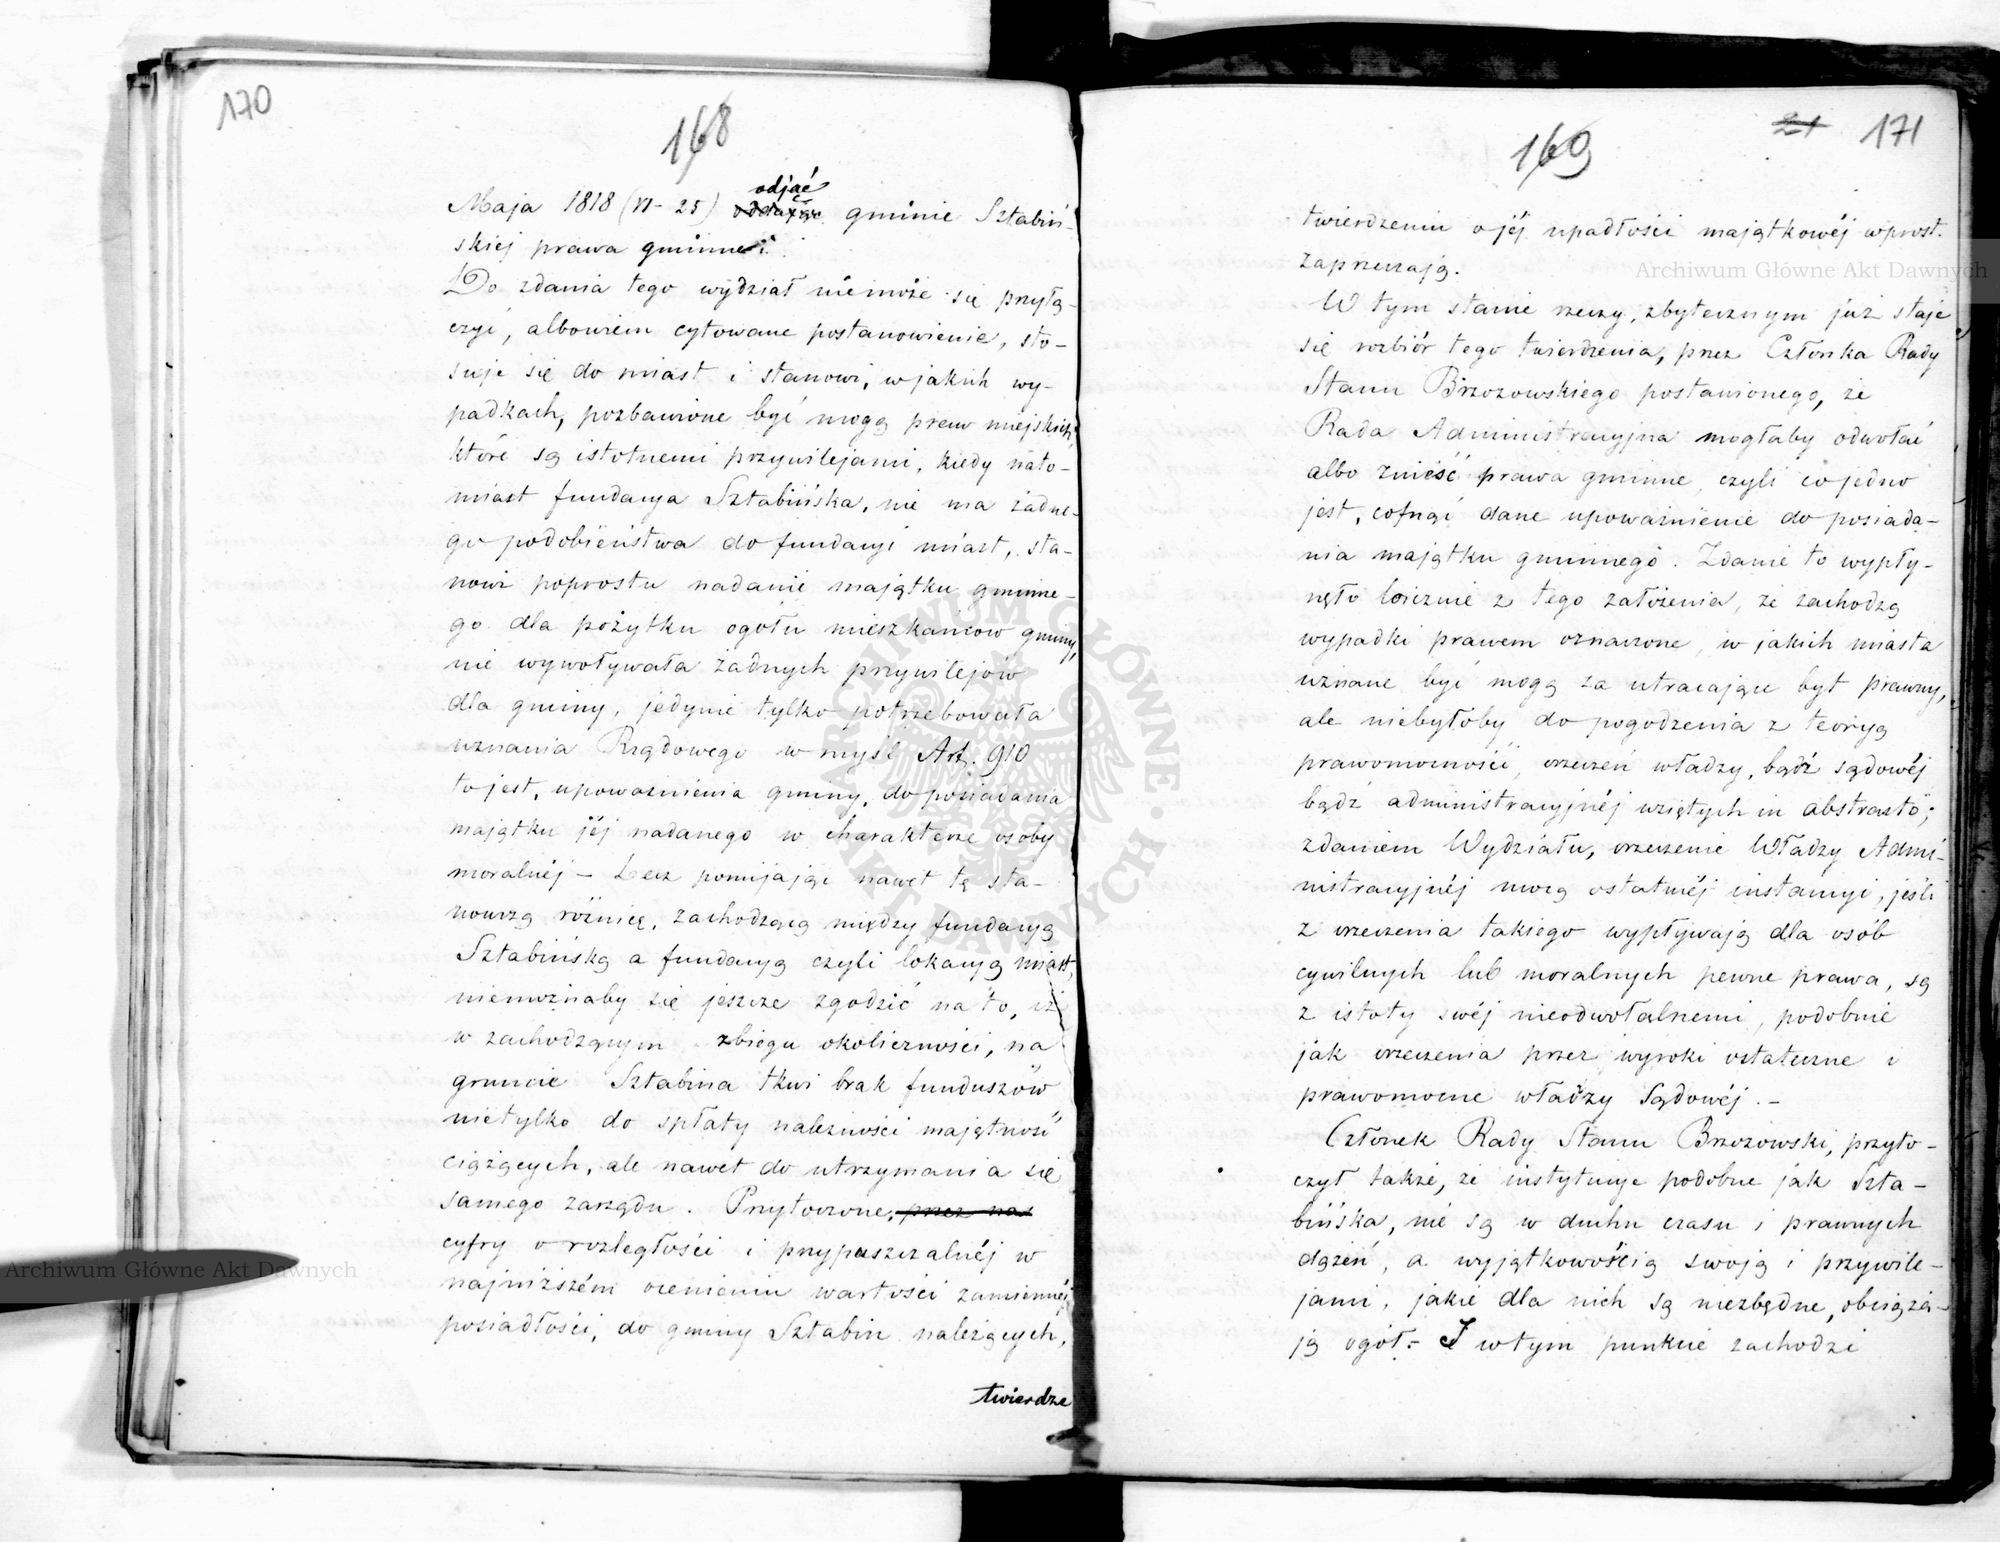 170
168
odjąć
Maja 1818 (VI - 25) gminie Sztabiń-
skiej prawa gminne.
Do zdania tego wydział niemoże się przyłą-
czyć, albowiem cytowane postanowienie, sto-
suje się do miast i stanowi, w jakich wy-
padkach, pozbawione być mogą praw miejskich,
które są istotnemi przywilejami, kiedy nato-
miast fundacya Sztabińska, nie ma żadne-
go podobieństwa do fundacyi miast, sta-
nowi poprostu nadanie majątku gminne-
go dla pożytku ogółu mieszkańców gminy,
nie wywoływała żadnych przywilejów
dla gminy, jedynie tylko potrzebowała
uznania Rządowego w myśl Art. 910
to jest, upoważnienia gminy, do posiadania
majątku jéj nadanego w charakterze osoby
moralnéj – Lecz pomijając nawet tę sta-
nowczą różnicę, zachodzącą między fundacyą
Sztabińską a fundacyą czyli lokacyą miast,
niemożnaby się jeszcze zgodzić na to, iż
w zachodzącym zbiegu okoliczności, na
gruncie Sztabina tkwi brak funduszów
nietylko do spłaty należności majętność
ciążących, ale nawet do utrzymania się
samego zarządu. Przytoczone, przez nas
cyfry o rozległości i przypuszczalnéj w
najniższém ocenieniu wartości zamiennéj
posiadłości, do gminy Sztabin należących,
twierdze
169
21 171
twierdzeniu o jéj upadłości majątkowéj wprost
zaprzeczają.
W tym stanie rzeczy, zbytecznym już staje
się rozbiór tego twierdzenia, przez Członka Rady
Stanu Brzozowskiego postawionego, że
Rada Administracyjna mogłaby odwołać
albo znieść prawa gminne, czyli co jedno
jest, cofnąć dane upoważnienie do posiada-
nia majątku gminnego. Zdanie to wypły-
nęło loicznie z tego założenia, że zachodzą
wypadki prawem oznaczone, w jakich miasta
uznane być mogą za utracające byt prawny,
ale niebyłoby do pogodzenia z teoryą
prawomocności, orzeczeń władzy, bądź sądowéj
bądź administracyjnéj wziętych in abstracto;
zdaniem Wydziału, orzeczenie Władzy Admi-
nistracyjnéj mocą ostatniéj instancyi, jeśli
z orzeczenia takiego wypływają dla osób
cywilnych lub moralnych pewne prawa, są
z istoty swéj nieodwołalnemi, podobnie
jak orzeczenia przez wyroki ostateczne i
prawomocne władzy Sądowéj. –
Członek Rady Stanu Brzozowski, przyto-
czył także, że instytucye podobne jak Szta-
bińska, nie są w duchu czasu i prawnych
dążeń, a wyjątkowością swoją i przywile-
jami, jakie dla nich są niezbędne, obciąża-
ją ogół. – I w tym punkcie zachodzi
Archiwum Główne Akt Dawnych
Archiwum Główne Akt Dawnych
ARCHIWUM GŁÓWNE AKT DAWNYCH